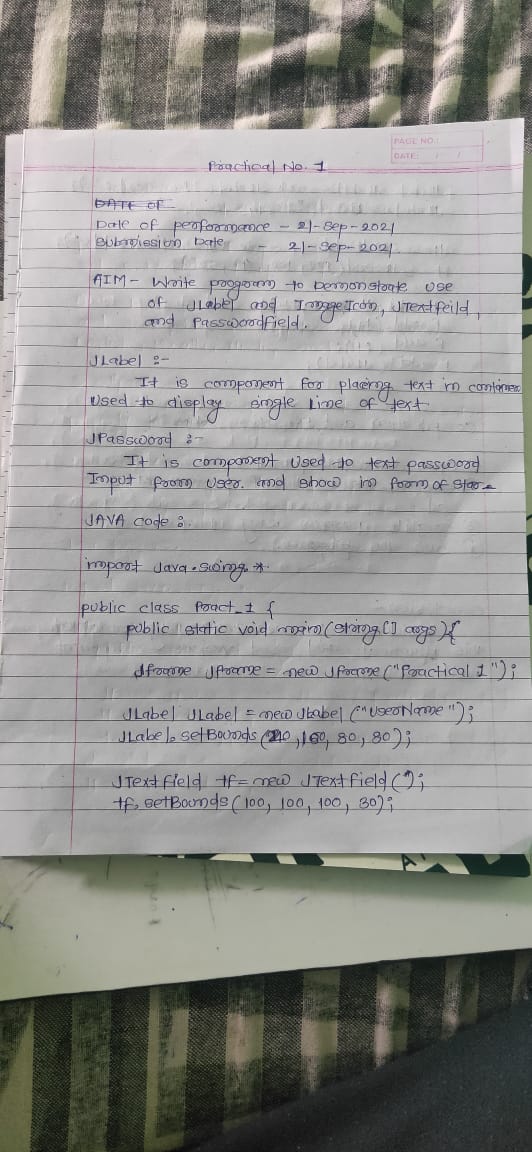 PAGE NO.:
DATE: / /
Practical No. 1
DATE OF
Date of performance - 21-Sep-2021
Submission Date - 21-Sep-2021.
AIM - Write program to Demonstrate use
of JLabel and ImageIcon, JTextfeild,
and Passwordfield.
JLabel :-
It is component for placing text in container
used to display single line of text.
JPassword :-
It is component used to text password
Input from user. and show in form of star.
JAVA code :
import Java.swing.*.
public class Pract_1 {
public static void main(string[] args){
Jframe Jframe = new Jframe ("Practical 1");
JLabel JLabel = new JLabel ("UserName");
JLabel.setBounds (20,100, 80, 80);
JTextfield tf= new JTextfield();
tf.setBounds (100, 100, 100, 30);
A